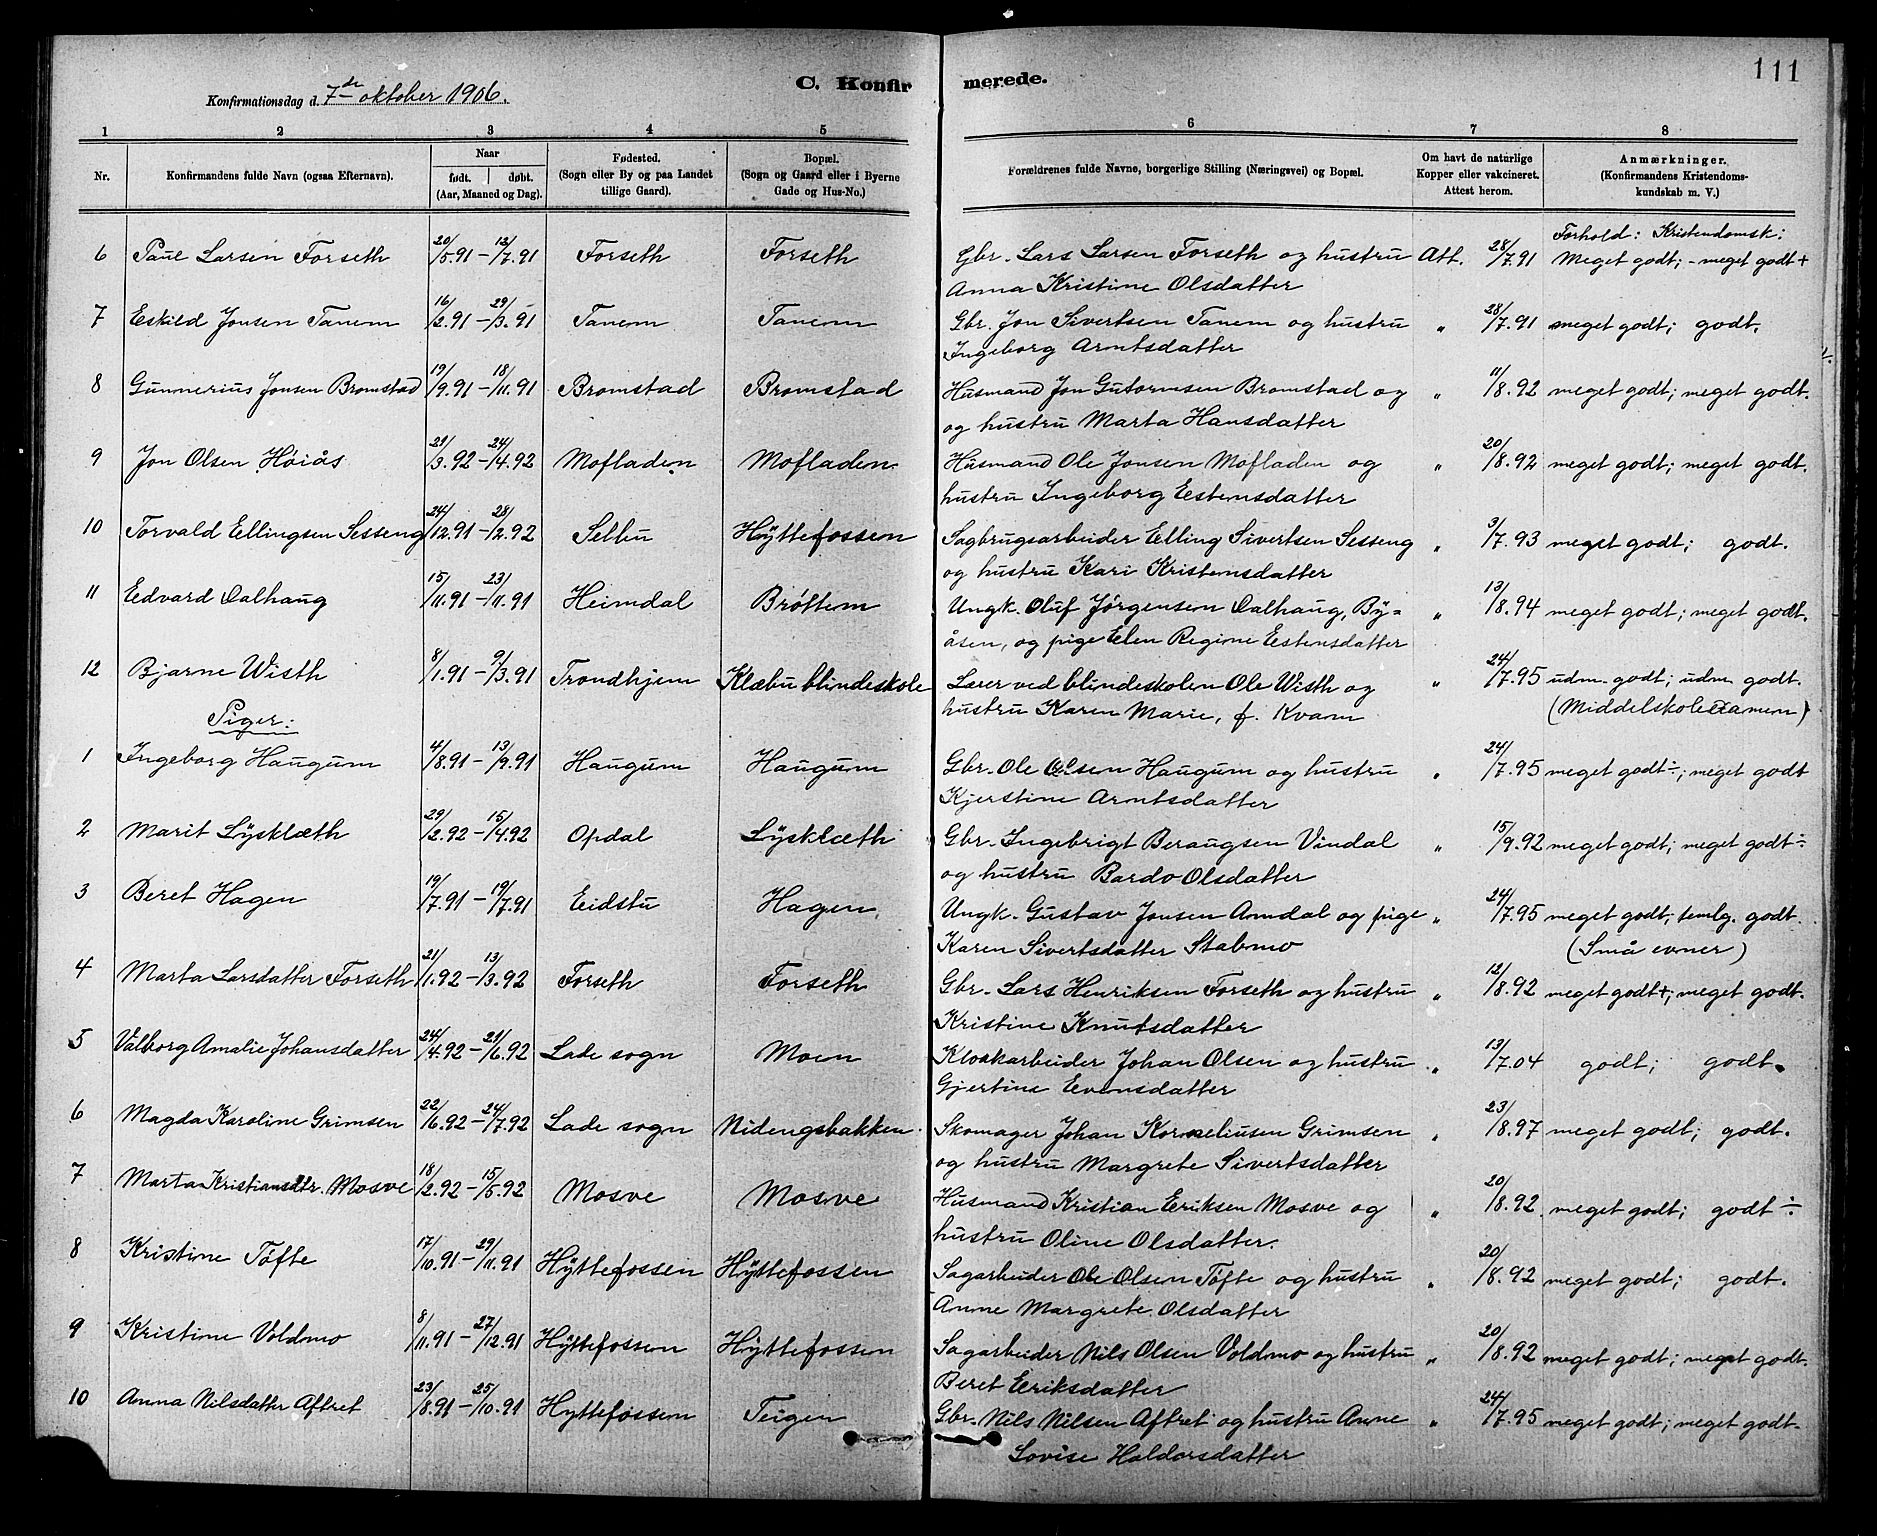 111
Konfirmationsdag d. 7de oktober 1906.
C. Konfirmerede.
1 2 3 4 5 6 7 8
Nr.
Konfirmandens fulde Navn (ogsaa Efternavn).
Naar
født. døbt.
(Aar, Maaned og Dag).
Fødested.
(Sogn eller By og paa Landet
tillige Gaard).
Bopæl.
(Sogn og Gaard eller i Byerne
Gade og Hus-No.)
Forældrenes fulde Navne, borgerlige Stilling (Næringsvei) og Bopæl.
Om havt de naturlige
Kopper eller vakcineret.
Attest herom.
Anmærkninger.
(Konfirmandens Kristendoms-
kundskab m. V.)
Forhold: Kristendomsk:
6 Paul Larsen Forseth 20/5.91 – 12/7.91 Forseth Forseth Gbr. Lars Larsen Forseth og hustru Att. 28/7.91 Meget godt; - meget godt +
Anna Kristine Olsdatter
7 Eskild Jonsen Tanem 16/2.91 – 29/3.91 Tanem Tanem Gbr. Jon Sivertsen Tanem og hustru " 28/7.91 meget godt; godt.
Ingeborg Arntsdatter
8 Gunnerius Jonsen Bromstad 19/9.91 – 18/11.91 Bromstad Bromstad Husmand Jon Gutormsen Bromstad og " 11/8.92 meget godt; meget godt.
og hustru Marta Hansdatter
9 Jon Olsen Høiås 21/3.92 – 24/4.92 Mofladen Mofladen. Husmand Ole Jonsen Mofladen og " 20/8.92 meget godt; meget godt.
hustru Ingeborg Estensdatter
10 Torvald Ellingsen Sesseng 24/12.91 – 28/2.92 Selbu Hyttefossen Sagbrugsarbeider Elling Sivertsen Sesseng " 3/7.93 meget godt; godt.
og hustru Kari Kristensdatter
11 Edvard Dalhaug 15/11.91 – 23/11.91 Heimdal Brøttem Ungk. Oluf Jørgensen Dalhaug, By- " 13/8.94 meget godt; meget godt.
åsen, og pige Elen Regine Estensdatter
12 Bjarne Wisth 8/1.91 – 9/3.91 Trondhjem Klæbu blindeskole Lærer ved blindeskolen Ole Wisth og " 24/7.95 udm. godt; udm. godt.
hustru Karen Marie, f. Kvam (Middelskoleexamen)
Piger:
1 Ingeborg Haugum 4/8.91 – 13/9.91 Haugum Haugum Gbr. Ole Olsen Haugum og hustru " 24/7.95 meget godt÷; meget godt
Kjerstine Arntsdatter
2 Marit Lysklæth 29/2.92 – 15/4.92 Opdal Lysklæth Gbr. Ingebrigt Beraugsen Vindal " 15/9.92 meget godt; meget godt÷
og hustru Bardo Olsdatter
3 Beret Hagen 19/7.91 – 19/7.91 Eidstu Hagen. Ungk. Gustav Jonsen Amdal og pige " 24/7.95 meget godt; temlg. godt.
Karen Sivertsdatter Stabmo (Små evner)
4 Marta Larsdatter Forseth 21/1.92 – 13/3.92 Forseth Forseth Gbr. Lars Henriksen Forseth og hustru " 12/8.92 meget godt+; meget godt.
Kristine Knutsdatter
5 Valborg Amalie Johansdatter 24/4.92 – 21/6.92 Lade sogn Moen Kloakarbeider Johan Olsen og hustru " 13/7.04 godt; godt.
Gjertine Evensdatter
6 Magda Karoline Grimsen 22/6.92 – 24/7.92 Lade sogn Nidengsbakken Skomager Johan Korneliusen Grimsen " 23/8.97 meget godt; godt.
og hustru Margrete Sivertsdatter
7 Marta Kristiansdtr Mosve 18/2.92 – 15/5.92 Mosve Mosve Husmand Kristian Eriksen Mosve og " 20/8.92. meget godt; godt ÷
hustru Oline Olsdatter.
8 Kristine Tøfte 17/10.91 – 29/11.91 Hyttefossen Hyttefossen Sagarbeider Ole Olsen Tøfte og hustru " 20/8.92 meget godt; godt.
Anne Margrete Olsdatter
9 Kristine Voldmo 8/11.91 – 27/12.91 Hyttefossen Hyttefossen Sagarbeider Nils Olsen Voldmo og hustru " 20/8.92 meget godt; meget godt.
Beret Eriksdatter
10 Anna Nilsdatter Aftret 23/8.91 – 25/10.91 Hyttefossen Teigen Gbr. Nils Nilsen Aftret og hustru Anne " 24/7.95 meget godt; meget godt.
Lovise Haldorsdatter